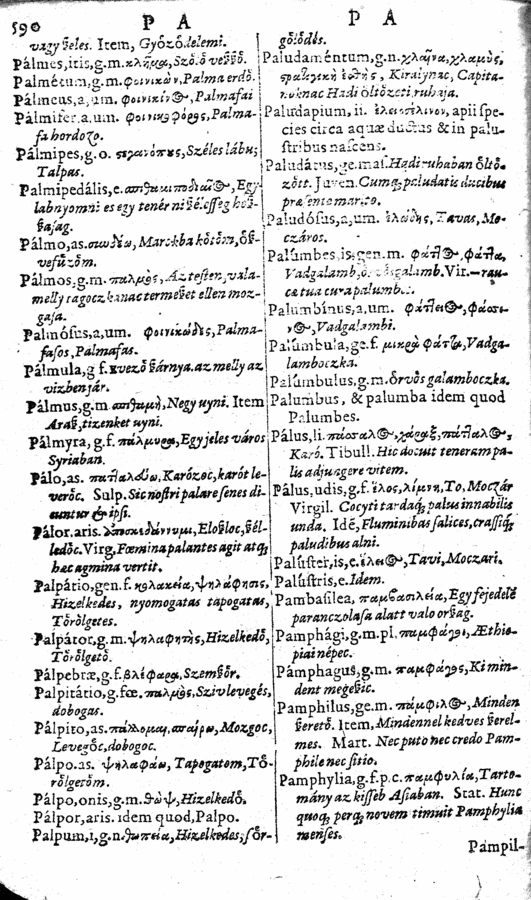 590 P A
vagy ſeles. Item, Gyözödelemi.
Pálmes, itis, g.m. κλῆμα, Szölö veßßö.
Palmétum, g.m. φοινικών, Palma erdö.
Pálmeus, a, um. Palmafai
Pálmifer, a, um. Palma-
fa hordozo.
Pálmipes, g.o. Széles lábu;
Talpas.
Palmipedális, e. Egy
labnyomni es egy tenérni
ßajag.
Pálmo, as. Marokba kötöm, öß-
veßüzöm.
Pálmos, g.m. παλμὸς, Az teſten, vala-
melly tagoczkanac termeßet ellen moz-
gaja.
Palmóſus, a, um. φοινικώδης, Palma-
faſos, Palmafas.
Pálmula, g.f. Evezö ßárnya. az melly az
vizben jár.
Pálmus, g.m. Negy uyni. Item
Araß, tizenket uyni.
Pálmyra, g.f. πάλμυρα, Egy jeles város
Syriaban.
Pálo, as. Karózoc, karót le-
veröc. Sulp. Sic noſtri palare ſenes di-
cuntur & ipſi.
Pálor. aris. Eloßloc, ßél-
ledöc. Virg. Fœmina palantes agit atq;
hæc agmina vertit.
Palpátio, gen. f. ψηλάφησις,
Hizelkedes, nyomogatas tapogatas,
Törölgetes.
Palpátor, g.m. ψηλαφητὴς, Hizelkedö,
Törölgetö.
Pálpebræ, g.f. βλέφαρα, Szemßör.
Palpitátio, g.fœ. παλμὸς, Sziv levegés,
dobogas.
Pálpito, as. Mozgoc,
Levegöc, dobogoc.
Pálpo. as. ψηλαφάω, Tapogatom, Tö-
rölgetöm.
Pálpo, onis, g.m. θώψ, Hizelkedö.
Pálpor, aris. idem quod, Palpo.
Palpum, i, g.n. θωπεία, Hizelkedes; ſör-
P A
gölödés.
Paludaméntum, g.n. χλαῖνα, χλαμὺς,
Kiraiynac, Capita-
noknac Hadi öltözeti, ruhaja.
Paludapium, ii. ἐλειοσέλινον, apii ſpe-
cies circa aquæ ductus & in palu-
ſtribus naſcens.
Paludátus, ge.maſ. Hadi ruhaban öltö-
zött. Juven. Cumq; paludatis ducibus
præſente marito.
Paludóſus, a, um. ἑλώδης, Tavas, Mo-
czáros.
Palúmbes, is, gen. m.
Vadgalamb, Virg. — rau-
cæ tua cura palumbes.
Palumbínus, a, um.
Vadgalambi.
Palúmbula, ge.f. μικρὰ φάττα, Vadga-
lamboczka.
Palúmbulus, g.m. örvös galamboczka.
Palumbus, & palumba idem quod
Palumbes.
Pálus, li. χάραξ,
Karó. Tibull. Hic docuit teneram pa-
lis adjungere vitem.
Pálus, udis, g.f. ἕλος, λίμνη, To, Moczár
Virgil. Cocyti tardaq; palus innabilis
unda. Idē, Fluminibus ſalices, craſſiſq;
paludibus alni.
Palúſter, is, e. Tavi, Moczari.
Palúſtris, e. Idem.
Pambaſilea, παμβασιλεία, Egy fejedelē
paranczolaſa alatt valo orßag.
Pamphági, g.m. pl. παμφάγοι, Æthio-
piai népec.
Pámphagus, g.m. παμφάγος, Ki min-
dent megeßic.
Pamphilus, ge.m. Minden
ßeretö. Item, Mindennel kedves ßerel-
mes. Mart. Nec puto nec credo Pam-
phile nec ſitio.
Pamphylia, g.f.p.c. παμφυλία, Tarto-
mány az kiſſeb Aſiaban. Stat. Hunc
quoq; perq; novem timuit Pamphylia
menſes.
Pampil-